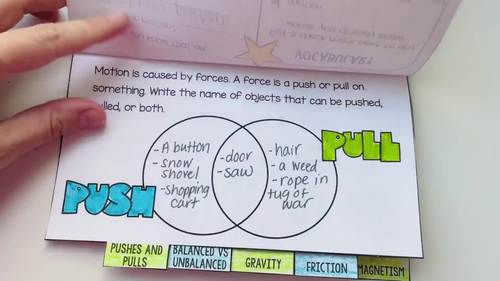 VOCABULARY
Motion is caused by forces. A force is a push or pull on
something. Write the name of objects that can be pushed,
or both.
PULL
- A button
- snow
shovel
- shopping
cart
- door
- saw
- hair
- a weed
- rope in
tug of
war
PUSH
PUSHES AND
PULLS
BALANCED VS
UNBALANCED
GRAVITY
FRICTION
MAGNETISM